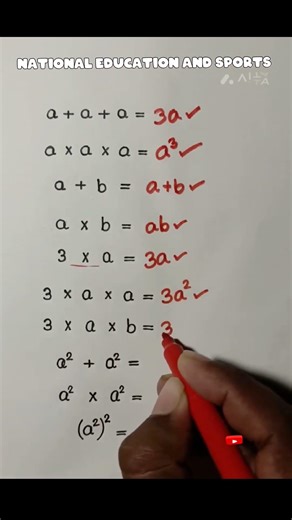 NATIONAL EDUCATION AND SPORTS
a + a + a = 3a ✓
a x a x a = a³ ✓
a + b = a+b ✓
a x b = ab ✓
3 x a = 3a ✓
3 x a x a = 3a² ✓
3 x a x b = 3
a² + a² =
a² x a² =
(a²)² =